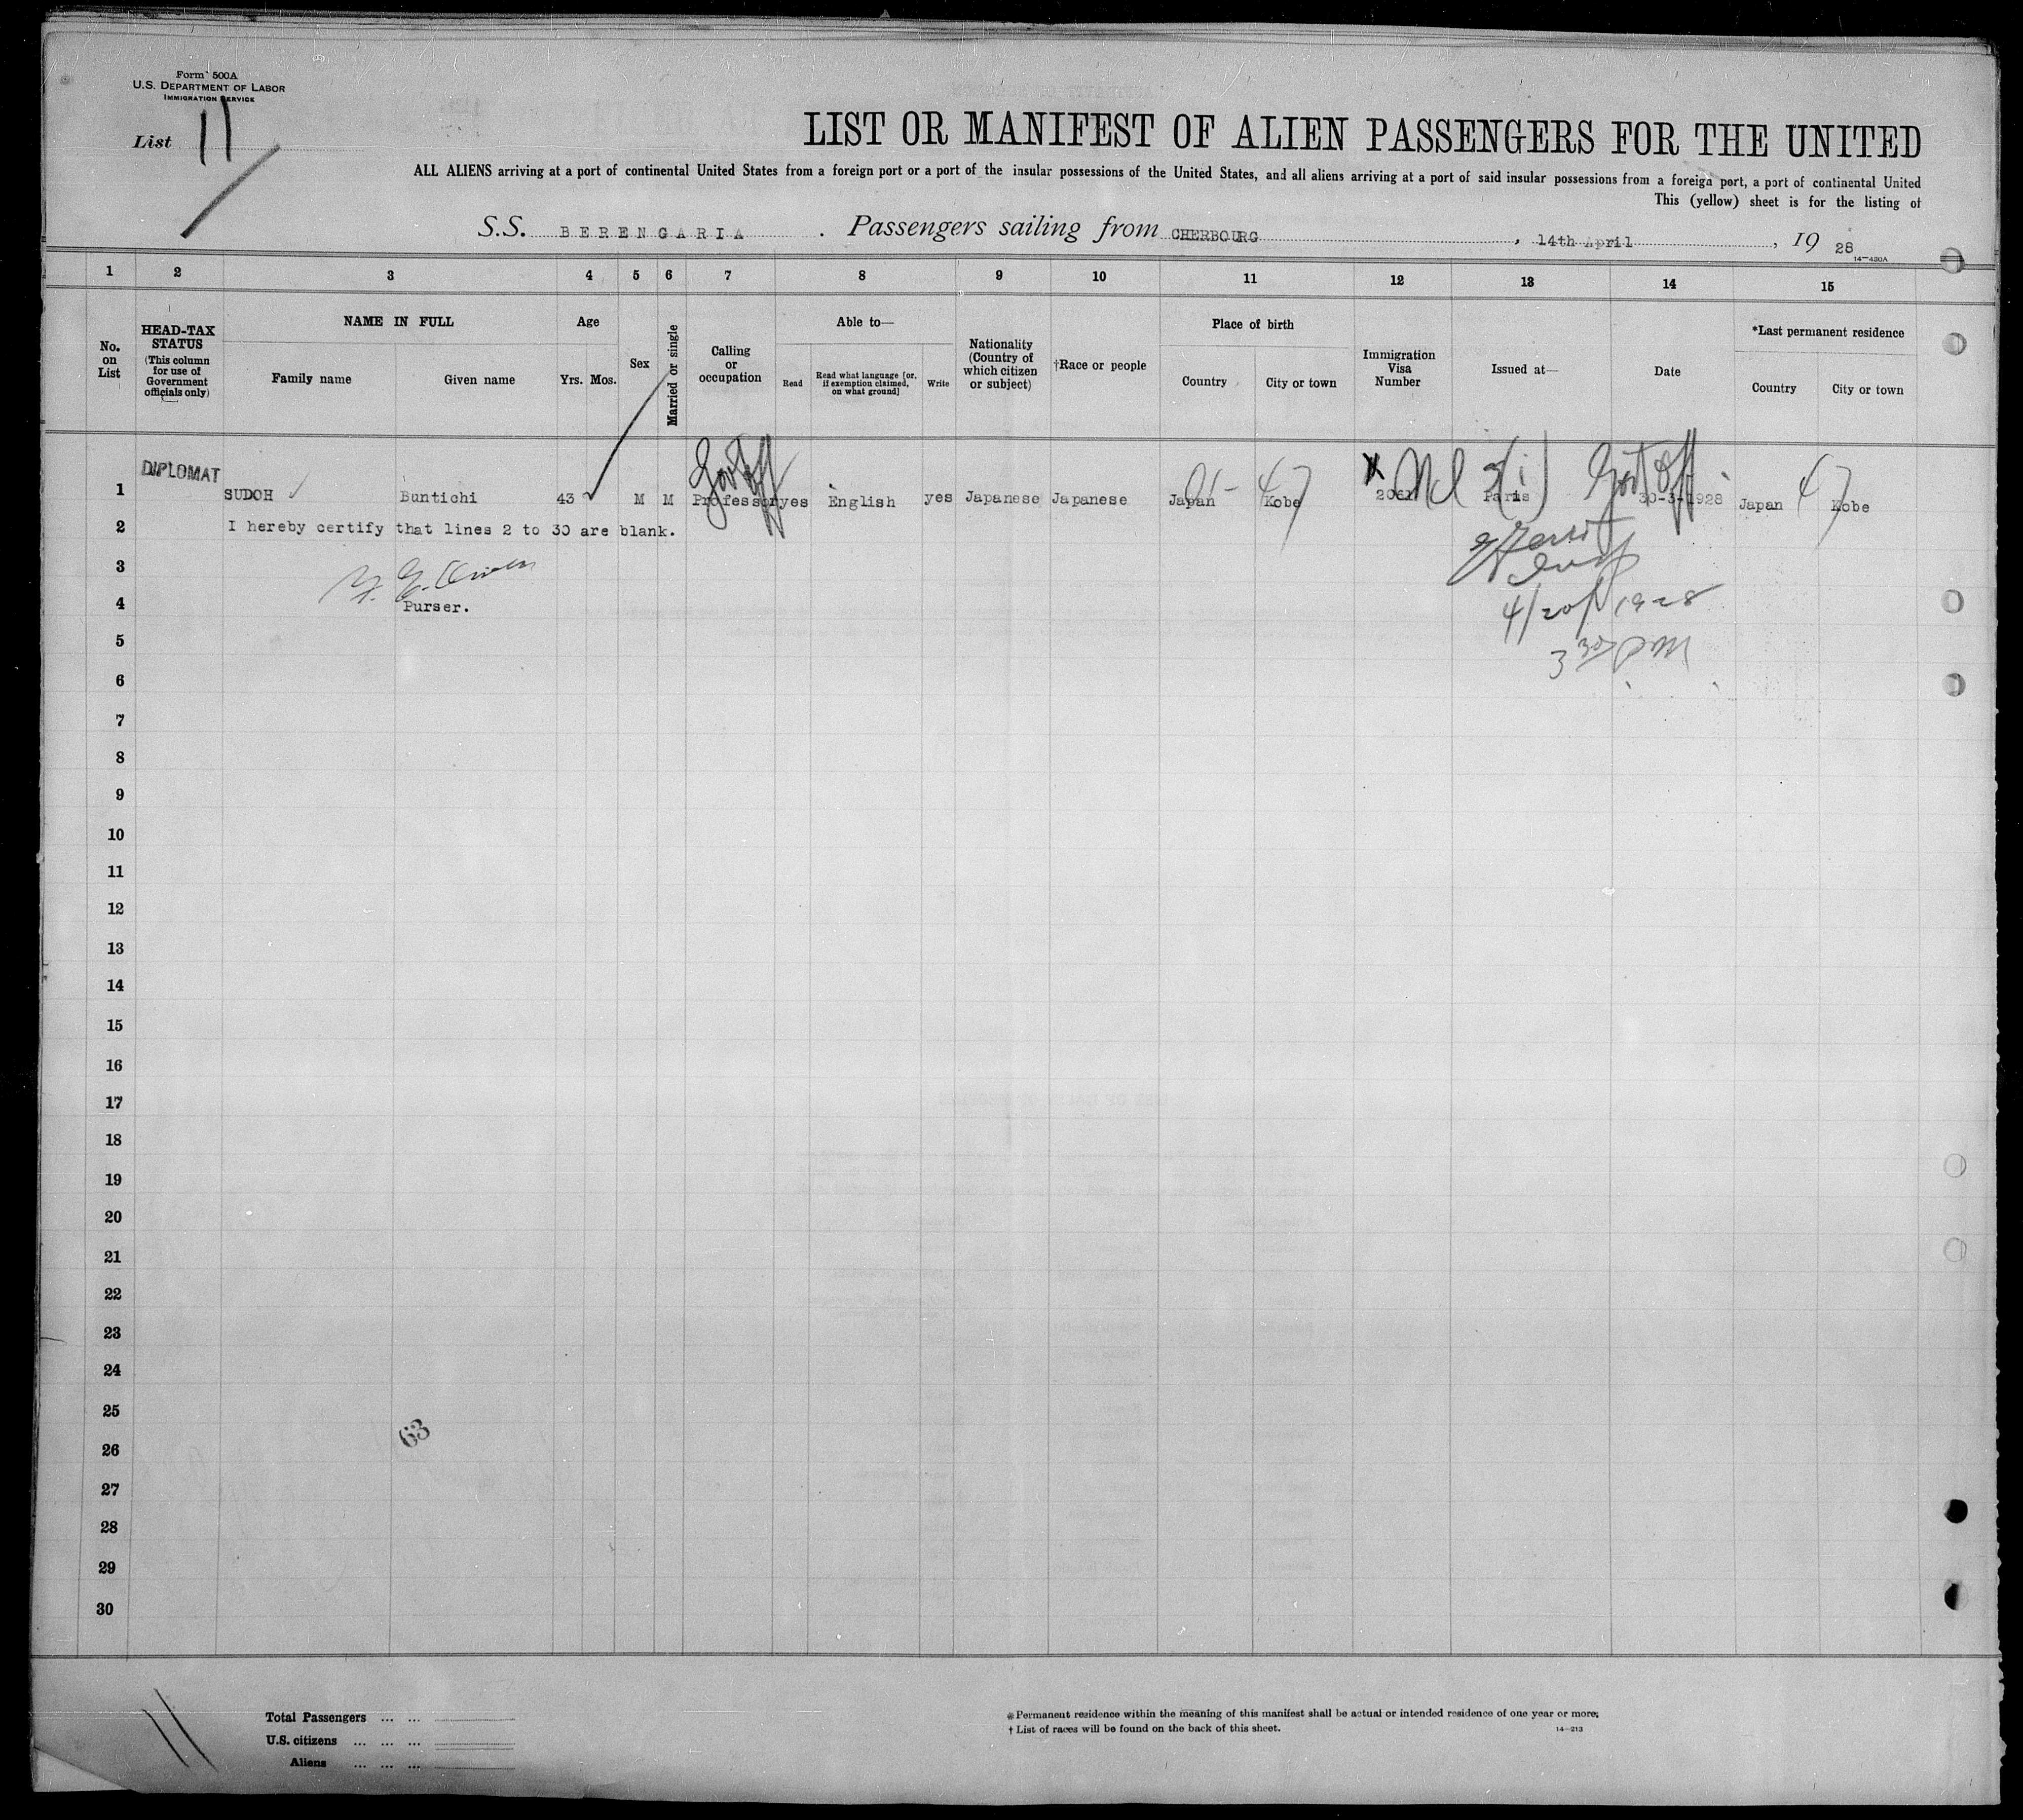 Form 500A
U.S. DEPARTMENT OF LABOR
IMMIGRATION SERVICE
List 11
LIST OR MANIFEST OF ALIEN PASSENGERS FOR THE UNITED
ALL ALIENS arriving at a port of continental United States from a foreign port or a port of the insular possessions of the United States, and all aliens arriving at a port of said insular possessions from a foreign port, a port of continental United
This (yellow) sheet is for the listing of
S.S. BERENGARIA. Passengers sailing from CHERBOURG, 14th April, 19 28
14—430A
1 2 3 4 5 6 7 8 9 10 11 12 13 14 15
No. on List
HEAD-TAX STATUS
(This column for use of Government officials only)
NAME IN FULL
Family name
Given name
Age
Yrs. Mos.
Sex
Married or single
Calling or occupation
Able to—
Read
Read what language [or, if exemption claimed, on what ground]
Write
Nationality (Country of which citizen or subject)
†Race or people
Place of birth
Country
City or town
Immigration Visa Number
Issued at—
Date
*Last permanent residence
Country
City or town
Govt Off
Govt Off
1 DIPLOMAT SUDOH Buntichi 43 M M Professor yes English yes Japanese Japanese Japan Kobe Paris 30-3-1928 Japan Kobe
2 I hereby certify that lines 2 to 30 are blank.
3
4 Purser.
4/20/1928
3 30 PM
5
6
7
8
9
10
11
12
13
14
15
16
17
18
19
20
21
22
23
24
25
63
26
27
28
29
30
11
Total Passengers ... ...
U.S. citizens ... ... ...
Aliens ... ... ...
*Permanent residence within the meaning of this manifest shall be actual or intended residence of one year or more.
† List of races will be found on the back of this sheet.
14—213